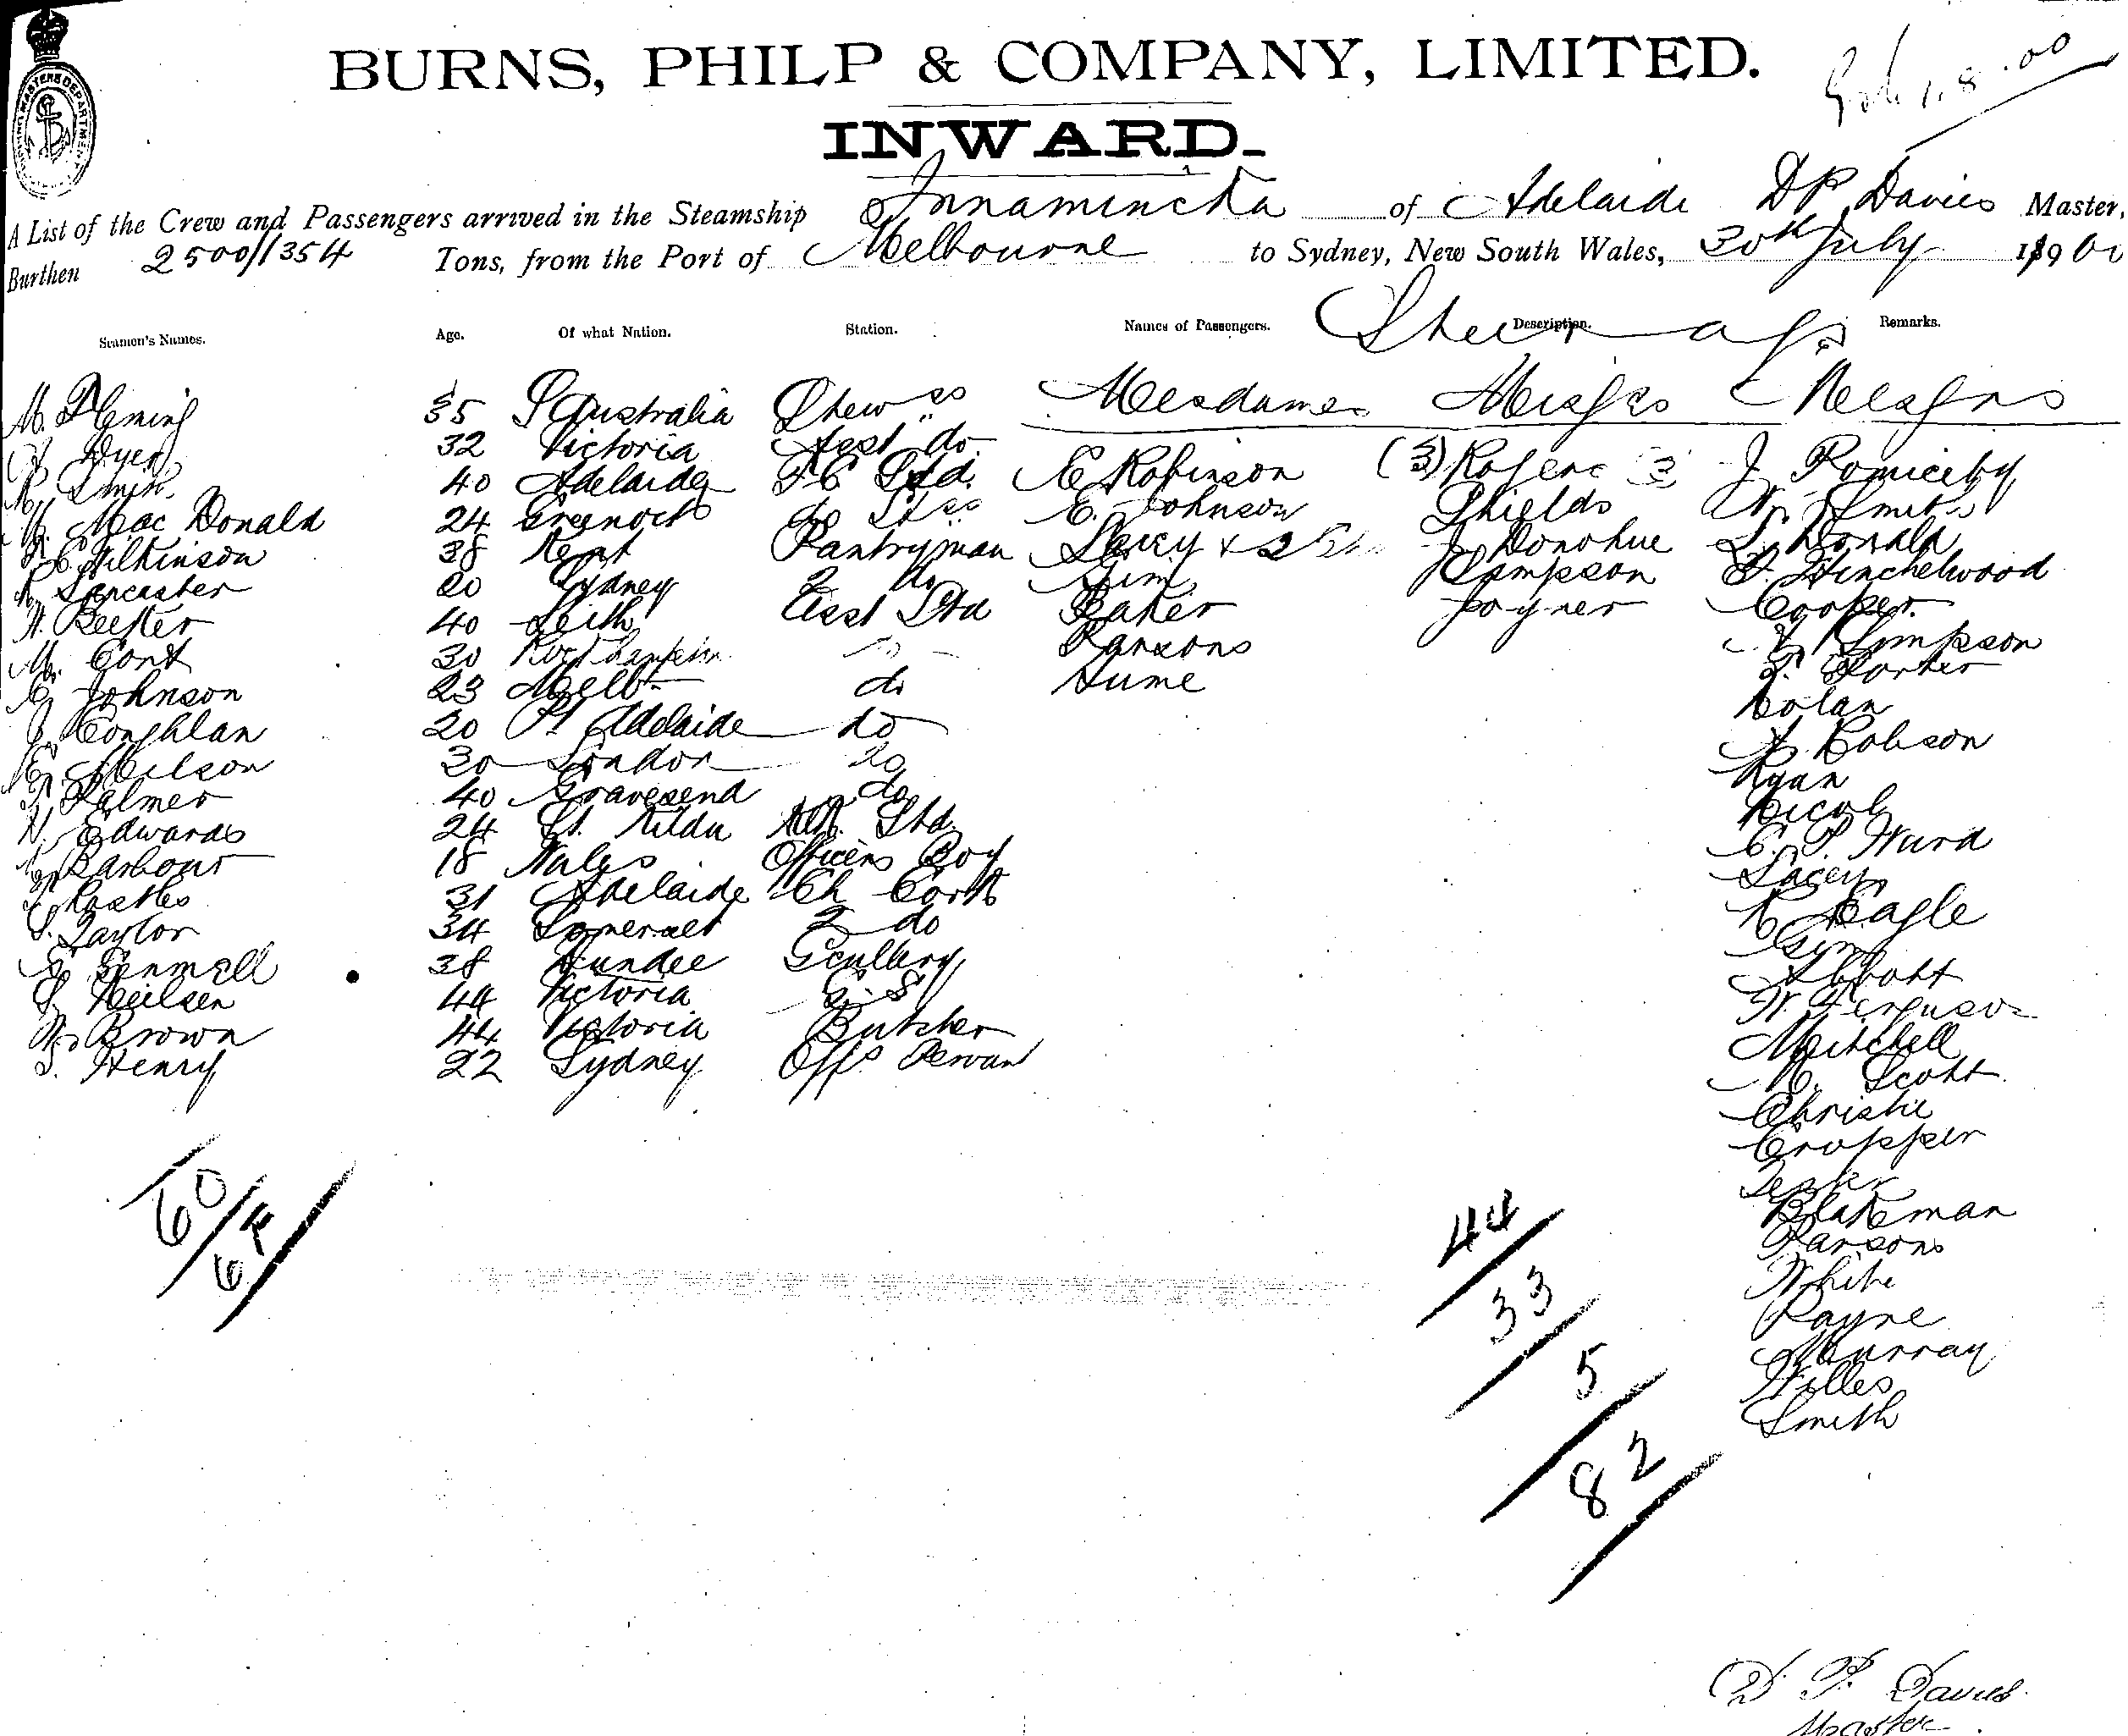 BURNS, PHILP & COMPANY, LIMITED.
1.8.00
INWARD.
A List of the Crew and Passengers arrived in the Steamship Innamincka of Adelaide D P Davies Master,
Burthen 2500/1354 Tons, from the Port of Melbourne to Sydney, New South Wales, 30th July 1900
Seamen's Names. Age. Of what Nation. Station. Names of Passengers. Description. Remarks.
Steerage
M. Fleming 35 S Australia Stewss Mesdames Misses Messrs
Dyer 32 Victoria Asst do
Smith 40 Adelaide F C Std. E Robinson (3) Rogers 3 J
Mac Donald 24 Greenock do Stss E. Johnson Shields W. Smith
Wilkinson 38 Kent Pantryman Lacey + 2 J Donohue Donald
Lancaster 20 Sydney 2 do Sampson Hinchelwood
40 Leith Asst Std Baker Joyner Cooper
M. Cont 30 Parsons Simpson
Johnson 23 Melb do Hume Porter
J. Coughlan 20 Pt Adelaide do Nolan
30 London do Robson
Palmer 40 Gravesend do Ryan
Edwards 24 St. Kilda Std. Nicol
Barbour 18 Wales Officers Boy C. P. Ward
31 Adelaide Ch Cook Lacey
S. Taylor 34 Somerset 2 do Eagle
38 Dundee Scullery
S. Neilsen 44 Victoria Abbott
W. Brown 44 Victoria Butcher W. Ferguson
S. Henry 22 Sydney Offs Servant Mitchell
Scott
Christie
Cropper
Blakeman
Parsons
White
Payne
Murray
Smith
60
64
44
33
5
82
D. P. Davies
Master